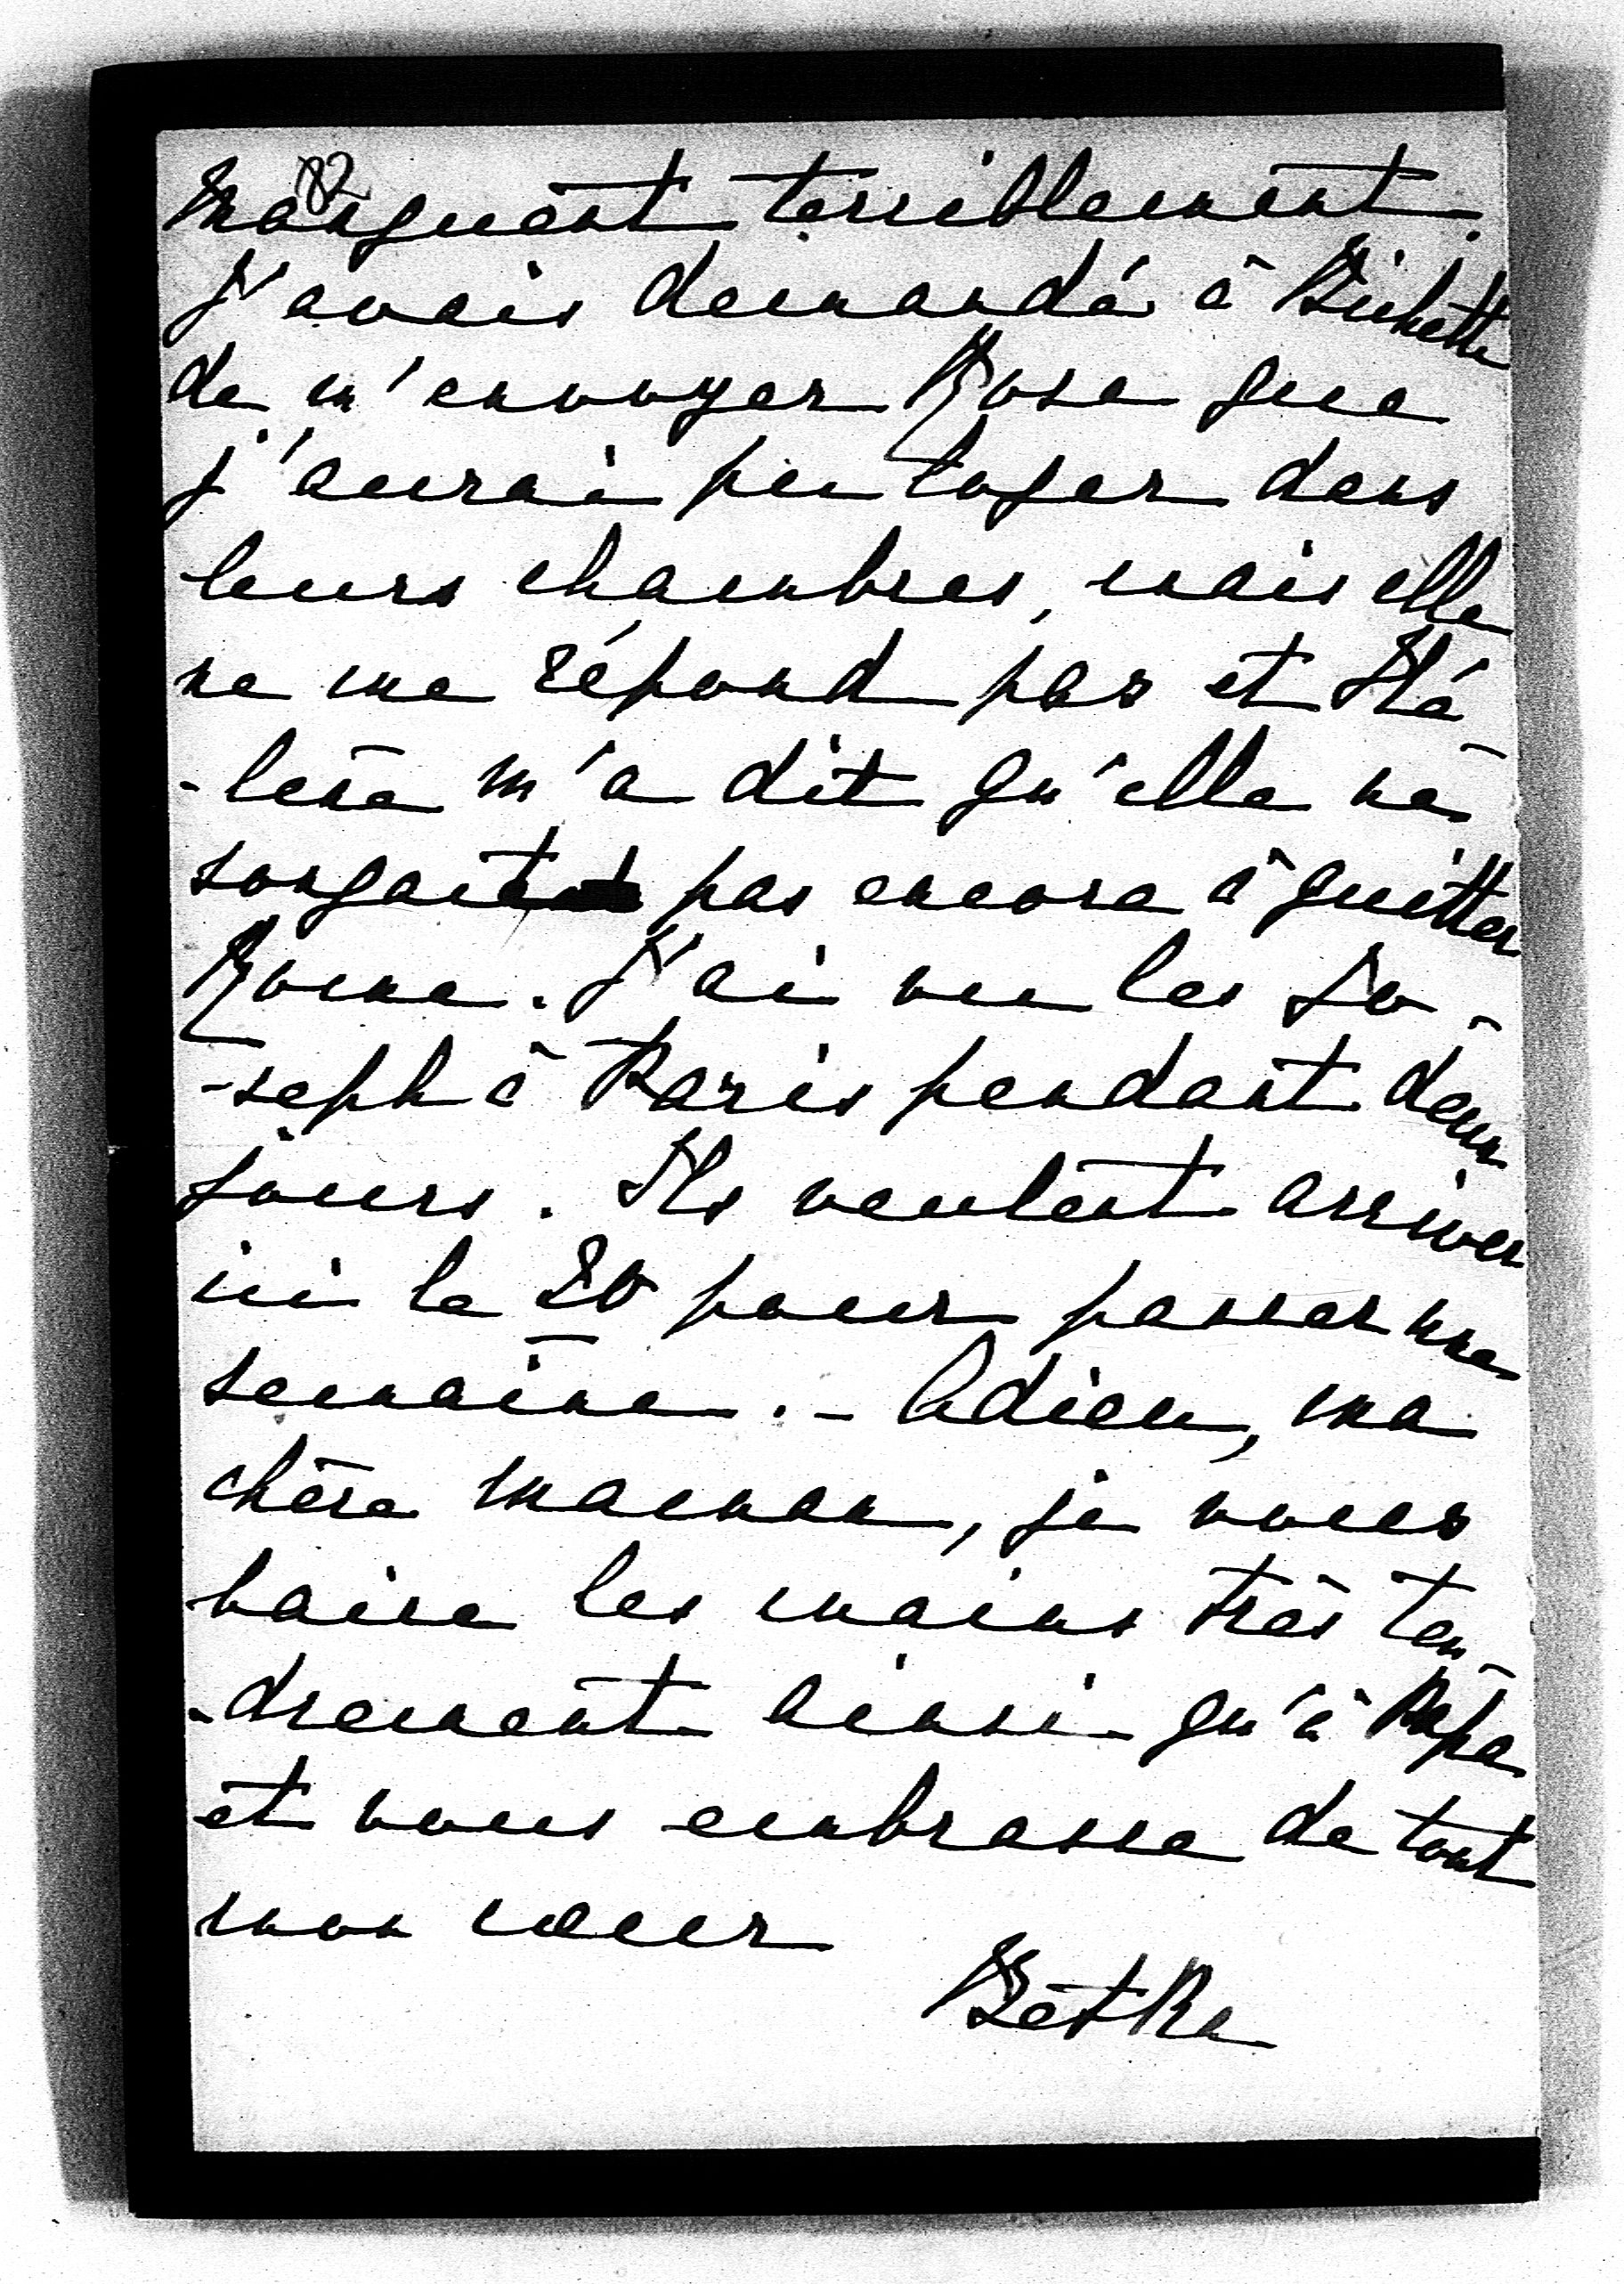 82
manquent terriblement.
J'avais demandé à Bichette
de m'envoyer Rose que
j'aurai pu loger dans
leurs chambres, mais elle
ne me répond pas et Hé-
-lène m'a dit qu'elle ne
songait pas encore à quitter
Rome. J'ai vu les Jo-
-seph à Paris pendant deux
jours. Ils veulent arriver
ici le 20 pour passer une
semaine. - Adieu, ma
chère maman, je vous
baise les mains très ten-
-drement ainsi qu'à Papa
et vous embrasse de tout
mon cœur
Betka